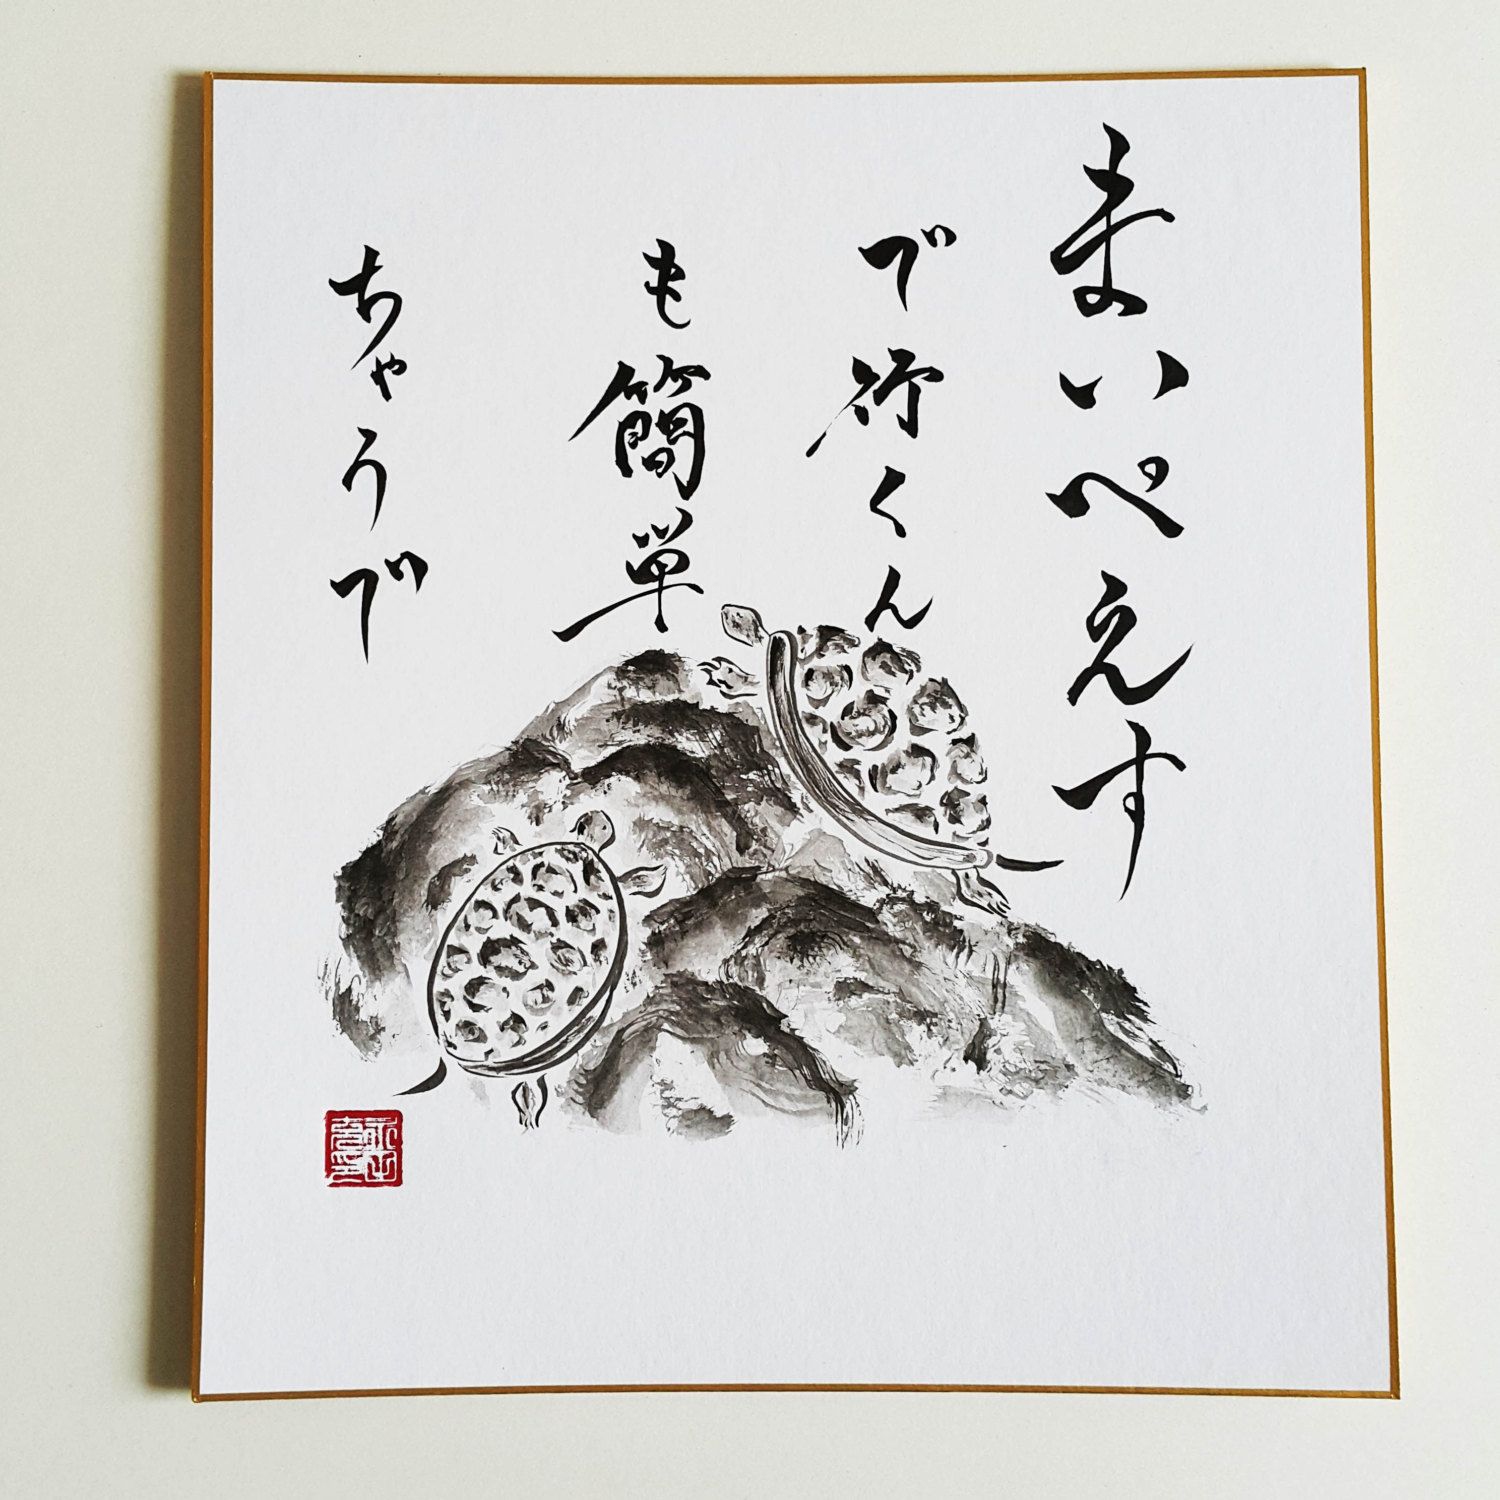 まいぺえす
で行くん
も簡単
ちゃうで